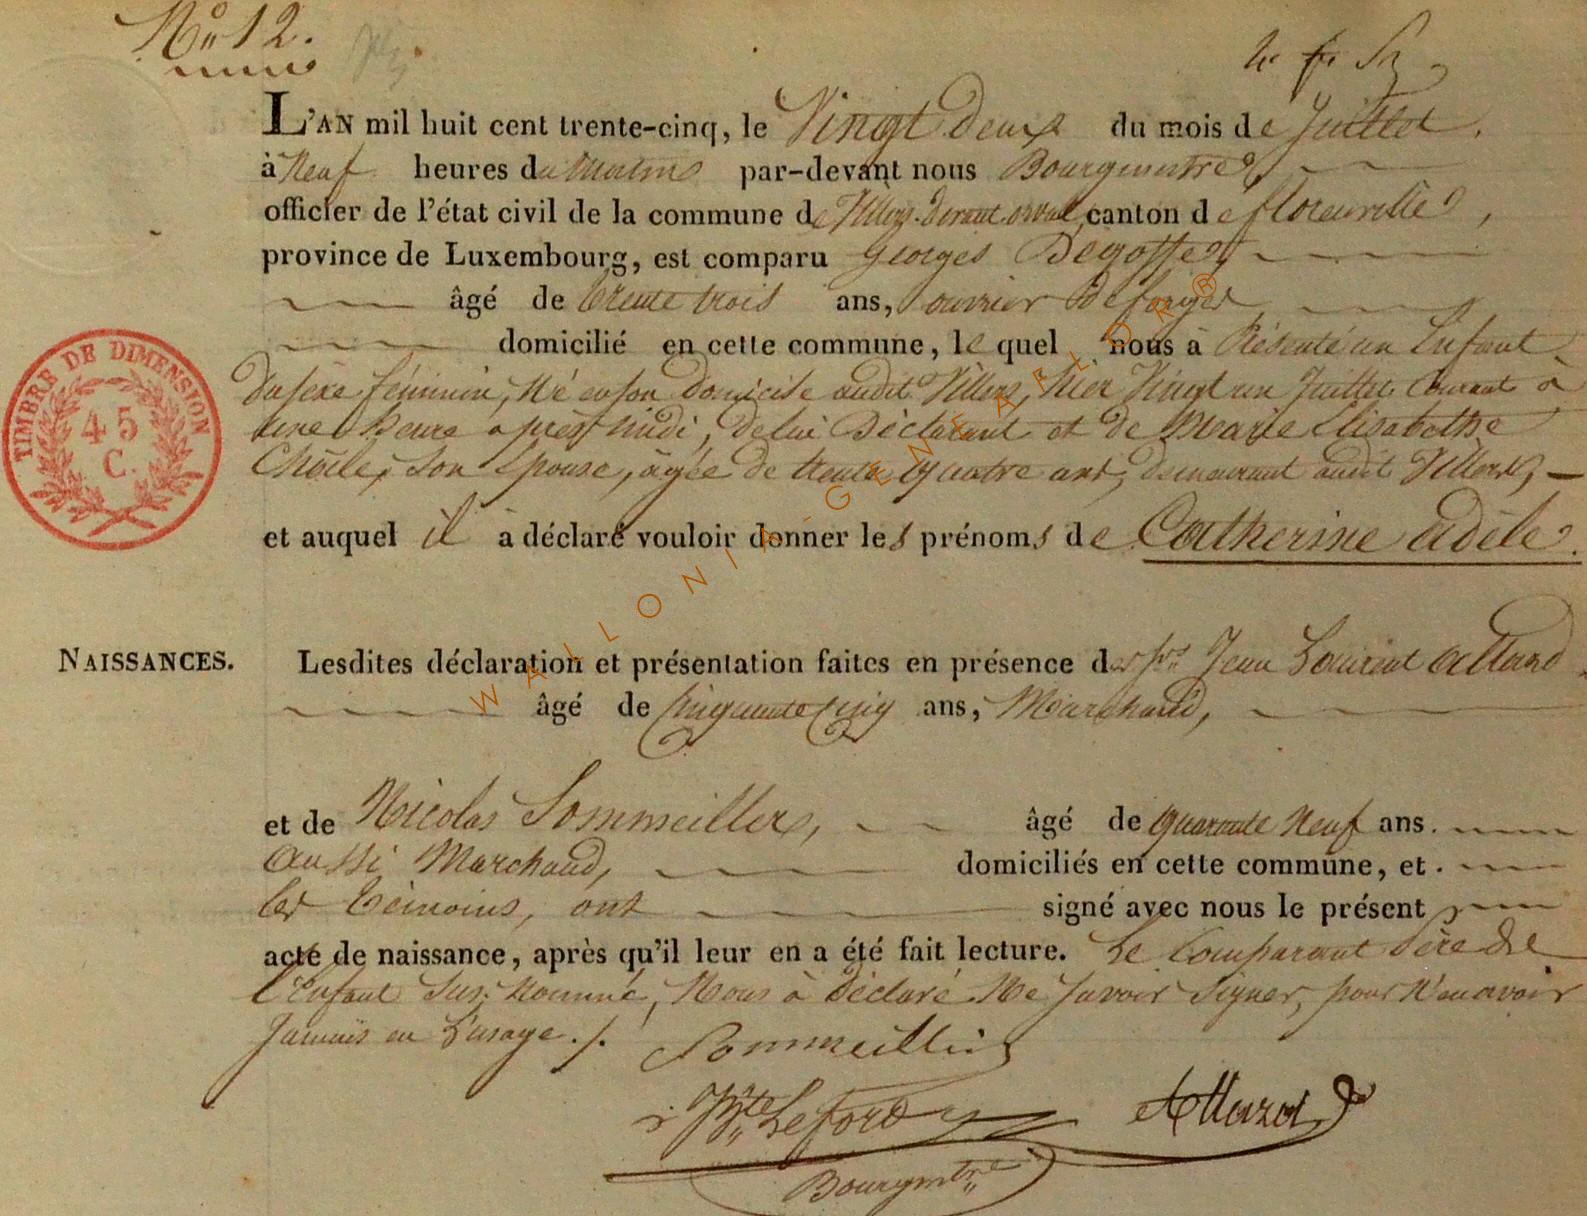 N° 12.
L'AN mil huit cent trente-cinq, le Vingt Deux du mois de Juillet.
à Neuf heures du Matin par-devant nous Bourgmestre,
officier de l'état civil de la commune de Villers-devant-orval, canton de florenville,
province de Luxembourg, est comparu Georges Degoffe,
âgé de trente trois ans, ouvrier de forges
domicilié en cette commune, le quel nous à Présenté un Enfant
Du sexe féminin, Né en son Domicile audit Villers, hier Vingt un Juillet Courant à
une heure après Midi, de lui Déclarant et de Marie Elisabethe
son Epouse, âgée de trente quatre ans, demeurant audit Villers, —
et auquel il à déclaré vouloir donner les prénoms de Catherine adèle.
TIMBRE DE DIMENSION
45
C.
NAISSANCES.
Lesdites déclaration et présentation faites en présence des Srs Jean Laurent allard
âgé de Cinquante Cinq ans, Marchand,
et de Nicolas Sommeiller, âgé de quarante Neuf ans.
aussi Marchand, domiciliés en cette commune, et.
les témoins, ont signé avec nous le présent
acte de naissance, après qu'il leur en a été fait lecture. Le Comparant Père de
l'Enfant Sus-Nommé, Nous à Déclaré Ne savoir Signer, pour N'en avoir
Jamais eu L'usage ./.
Sommeillier
Lefort
Bourgmtre
WALLONIA-GENEAFLOR®